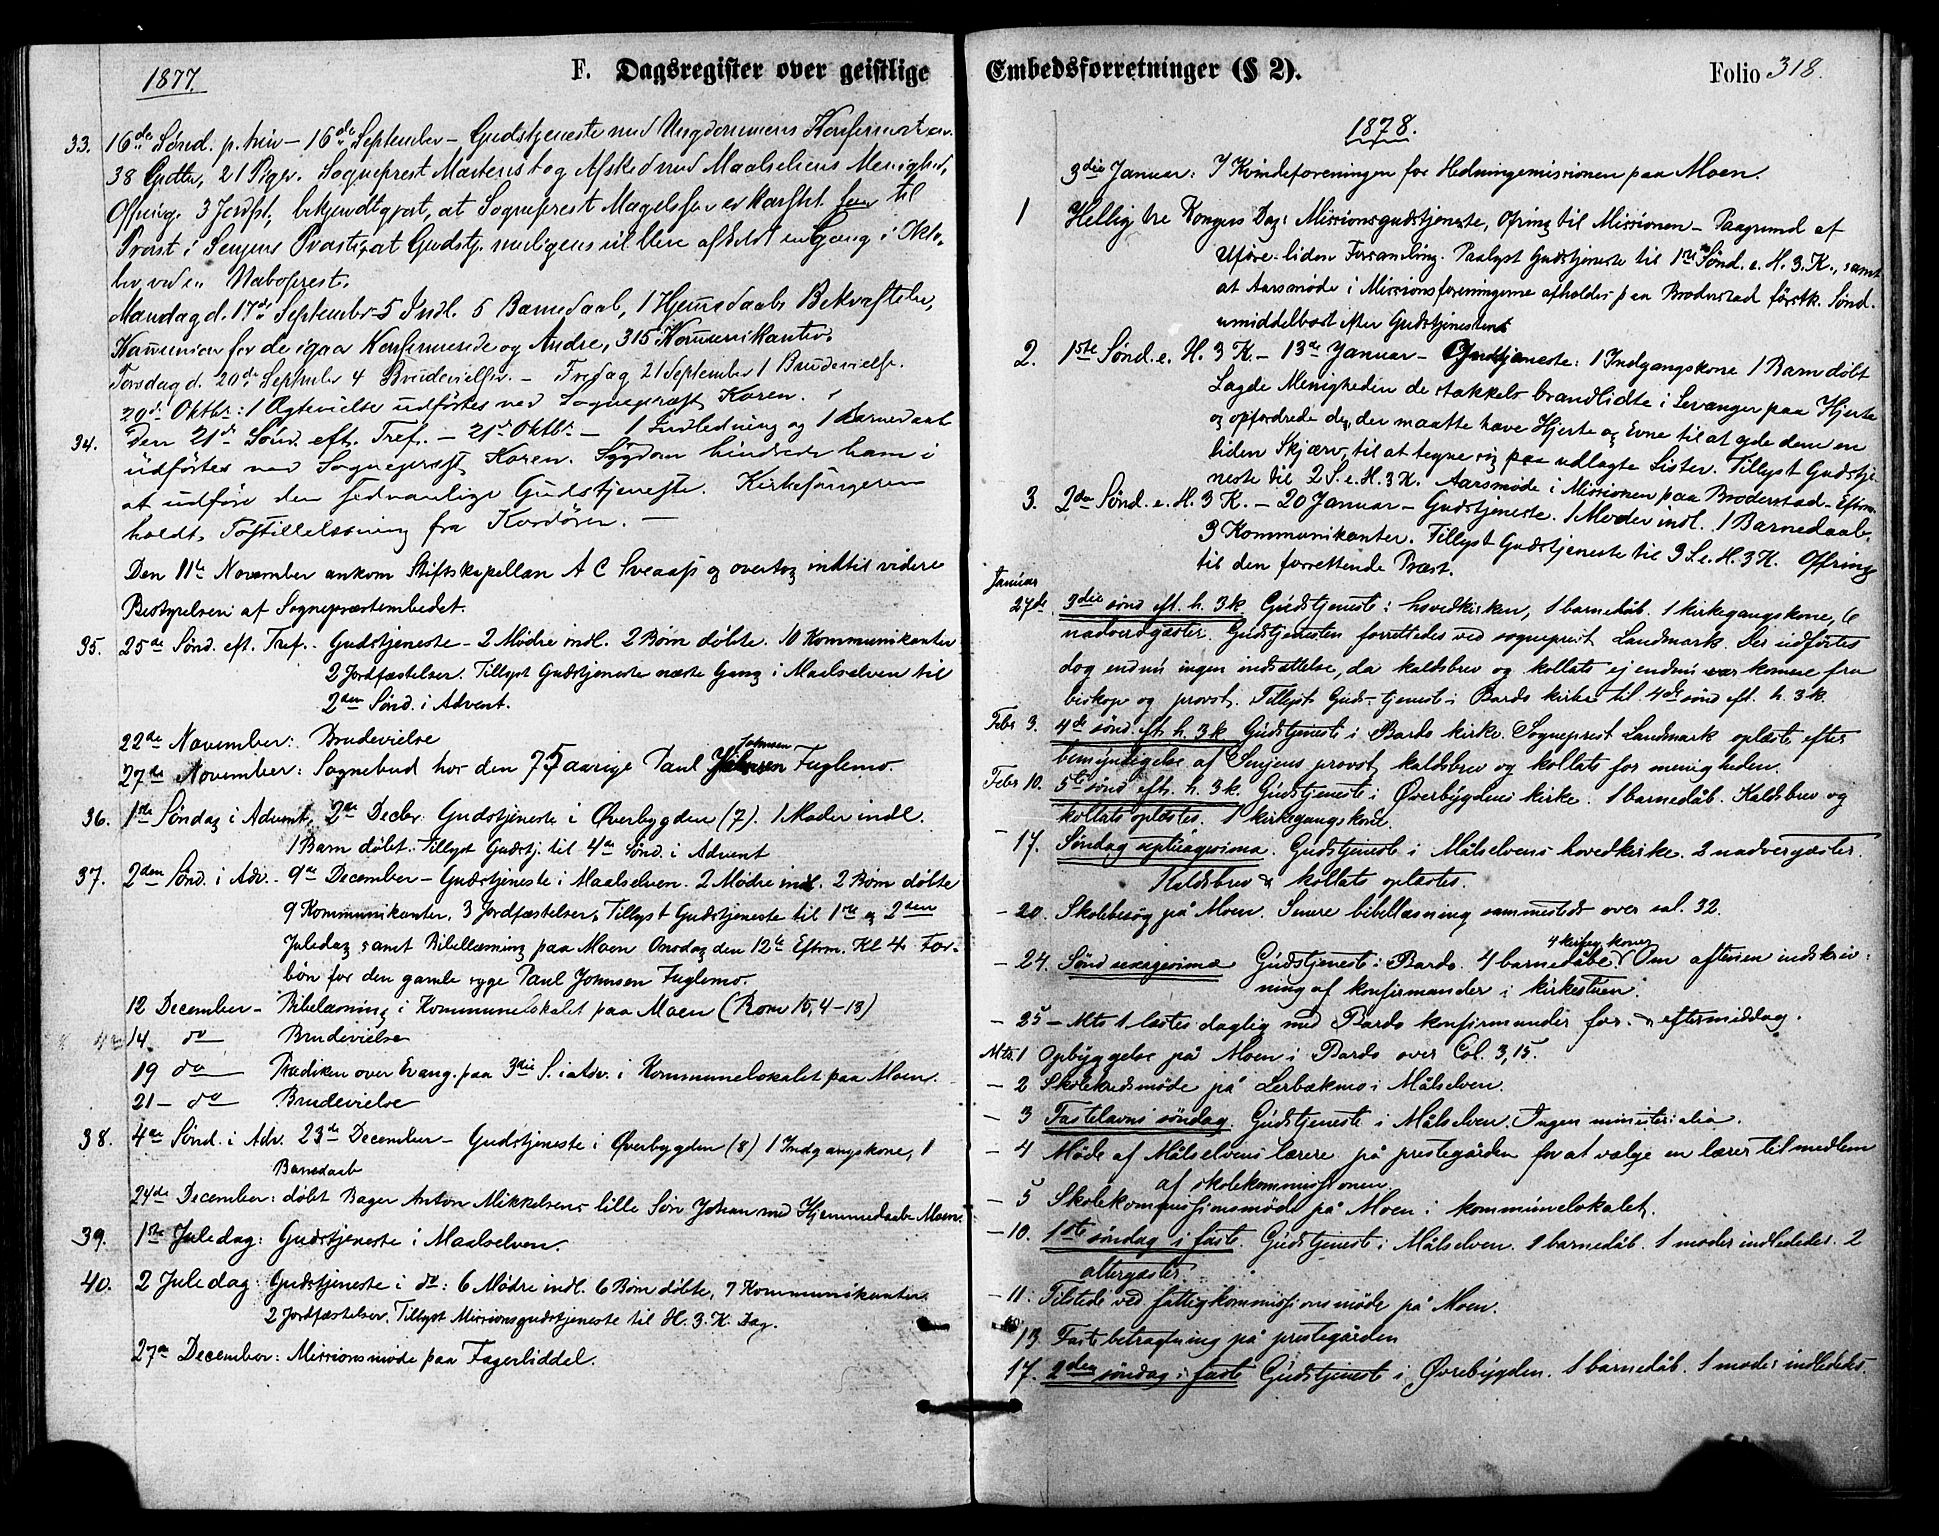 1877.
F. Dagsregister over geistlige
33. 16de Sönd. p. trin – 16de September – Gudstjeneste med Ungdommens Konfirmation.
38 Gutter, 21 Piger. Sogneprest Mæterist tog Afsked med Maalselvens Menighed,
Ofring. 3 Jordfst., bekjendtgjort, at Sogneprest Magelssen er konst. til
Provst i Senjens Provsti, at Gudstj. muligens vil blive afholdt en Gang i Okto-
ber ved en Naboprest.
Mandag d. 17de September – 5 Indl. 5 Barnedaab, 1 Hjemedaabs Bekræftelse,
Kommunion for de igaar Konfirmerede og Andre, 315 Kommunikanter.
Torsdag d. 20de September 4 Brudevielser. – Fredag 21 September 1 Brudevielse.
20de Oktbr: 1 Ægtevielse udförtes ved Sognepræst Koren.
34. Den 21de Sönd. eft. Tref. – 21de Oktbr – 1 Indledning og 1 Barnedaab
udförtes ved Sognepræst Koren. Sygdom hindrede ham i
at udföre den sedvanlige Gudstjeneste. Kirkesangeren
holdt Postillelæsning fra Kordören. –
Den 11te November ankom Stiftskapellan A C Sveaass og overtog indtil videre
Bestyrelsen af Sognepræstembedet.
35. 25de Sønd. eft. Tref. – Gudstjeneste – 2 Mødre indl. 2 Børn døbte. 10 Kommunikanter
2 Jordfæstelser. Tillyst Gudstjeneste næste Gang i Maalselven til
2den Sönd. i Advent.
22de November: Brudevielse
27de November: Sognebud hos den 75 aarige Paul Johnsen Fuglemo.
36. 1ste Søndag i Advent, 2de Decbr. Gudstjeneste i Øverbygden (7). 1 Moder indl.
1 Barn døbt. Tillyst Gudstj. til 4de Sønd. i Advent
37. 2den Sønd. i Adv. – 9de December – Gudstjeneste i Maalselven. 2 Mødre indl. 2 Børn døbte
9 Kommunikanter, 3 Jordfæstelser, Tillyst Gudstjeneste til 1ste og 2den
Juledag samt Bibellæsning paa Moen Onsdag den 12te Efterm. Kl 4. For-
bön for den gamle syge Paul Johnsen Fuglemo.
12 December – Bibelæsning i Kommunelokalet paa Moen (Rom 15, 4–13)
14. do Brudevielse
19 do Prædiken over Evang. paa 3die S. i Adv. i Kommunelokalet paa Moen.
21 – do Brudevielse
38. 4de Sønd. i Adv. 23de December – Gudstjeneste i Øverbygden (8) 1 Indgangskone, 1
Barnedaab
24de December: døbt Bager Anton Mikkelsens lille Søn Johan med Hjemmedaab Moen.
39. 1ste Juledag: Gudstjeneste i Maalselven.
40. 2 Juledag: Gudstjeneste i do: 6 Mødre indl. 6 Børn døbte, 7 Kommunikanter.
2 Jordfæstelser. Tillyst Missionsgudstjeneste til H. 3. K. Dag.
27de December: Missionsmøde paa Fagerliddel.
Embedsforretninger (§ 2).
Folio 318.
1878.
3die Januar: I Kvindeforeningen for Hedningemissionen paa Moen.
1 Hellig tre Kongers Dag: Missionsgudstjeneste, Ofring til Missionen – Paagrund af
Uføre liden Forsamling. Paalyst Gudstjeneste til 1ste Sønd. e. H. 3. K., samt
at Aarsmøde i Missionsforeningerne afholdes paa Broderstad förstk. Sønd.
umiddelbart efter Gudstjenesten.
2. 1ste Sønd. e. H. 3 K. – 13de Januar – Gudstjeneste: 1 Indgangskone 1 Barn døbt
Lagde Menigheden de stakkels brandlidte i Levanger paa Hjerte
og opfordrede dem, der maatte have Hjerte og Evne til at yde dem en
liden Skjærv, til at tegne sig paa udlagte Lister. Tillyst Gudstje-
neste til 2 S. e. H. 3 K. Aarsmøde i Missionen paa Broderstad – Efterm.
3. 2den Sønd. e. H. 3 K. – 20 Januar – Gudstjeneste. 1 Moder indl. 1 Barnedaab,
3 Kommunikanter. Tillyst Gudstjeneste til 3 S. e. H. 3 K. Offring
til den forrettende Præst.
Januar
27de 3die sønd eft. h. 3 k. Gudstjeneste i hovedkirken, 1 barnedåb. 1 kirkegangskone, 6
nadverdgæster. Gudstjenesten forrettedes ved sogneprest Landmark. Der udførtes
dog endnu ingen indsættelse, da kaldsbrev og kollats ej endnu var komne fra
biskop og provst. Tillyst Gudstjeneste i Bardo kirke til 4de sønd eft. h. 3 k.
Febr 3. 4de sønd. eft h. 3 k Gudstjeneste i Bardo kirke. Sogneprest Landmark oplæste efter
bemyndigelse af Senjens provst kaldsbrev og kollats for menigheden.
Febr 10. 5te sønd eft. h. 3 k. Gudstjeneste i Øverbygdens kirke. 1 barnedåb. Kaldsbrev og
kollats oplæstes. 1 kirkegangskone.
– 17. Søndag septuagesima. Gudstjeneste i Målselvens hovedkirke. 2 nadvergæster.
Kaldsbrev & kollats oplæstes.
– 20. Skolebesøg på Moen. Senere bibellæsning sammesteds over sal. 32.
4 kirkeg. koner
– 24. Sønd sexagesima Gudstjeneste i Bardo. 4 barnedåbe. Om aftenen indskriv-
ning af konfirmander i kirkestuen.
– 25 – Mts 1 læstes daglig med Bardo konfirmander for- & eftermiddag.
Mts. 1 Opbyggelse på Moen i Bardo over Col. 3, 15.
– 2 Skolekredsmøde på Lerbækmo i Målselven.
– 3 Fastelavns søndag. Gudstjeneste i Målselven. Ingen ministerialia.
– 4 Møde af Målselvens lærere på prestegården for at vælge en lærer til medlem
af skolekommissionen.
– 5 Skolekommissionsmøde på Moen i kommunelokalet.
– 10. 1ste søndag i faste. Gudstjeneste i Målselven. 1 barnedåb. 1 moder indlededes. 2
altergæster.
– 11. Tilstede ved fattigkommissionsmøde på Moen.
– 13 Fastebetragtning på prestegården
17. 2den søndag i faste Gudstjeneste i Øvrebygden. 1 barnedåb. 1 moder indlededes.